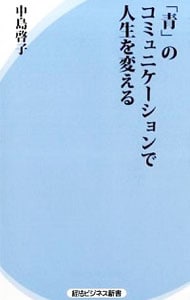 「青」の
コミュニケーションで
人生を変える
中島啓子
経法ビジネス新書